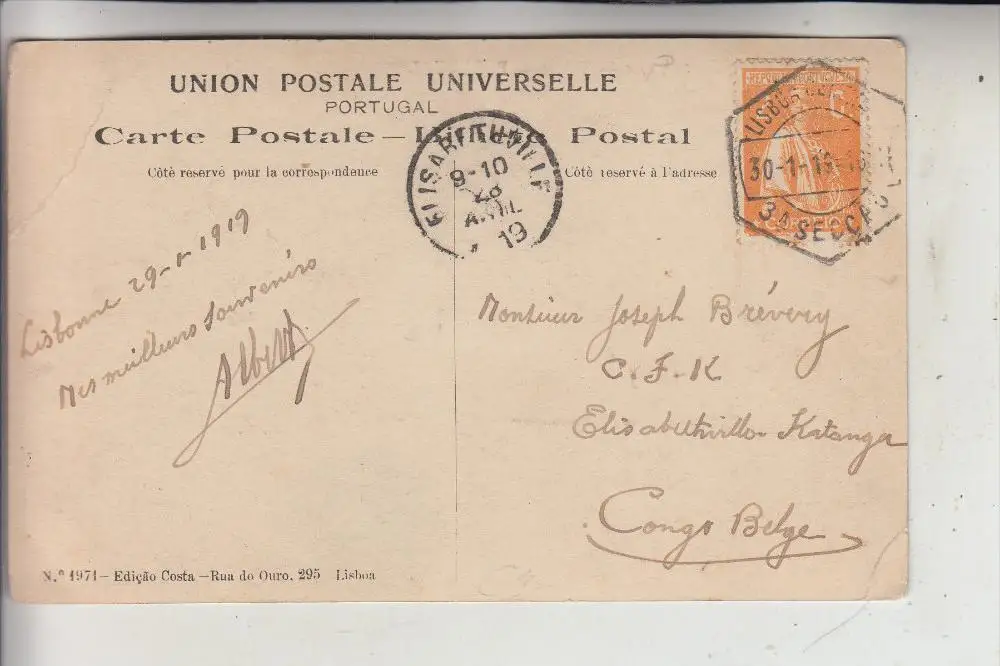 UNION POSTALE UNIVERSELLE
PORTUGAL
Carte Postale — Postal
Côtè reservé pour la correspondence
Côtè reservé à l'adresse
ELISABETHVILLE
9-10
28
AVRIL
19
LISBOA
30-1-19
3A SECCÃO
CORREIO
Lisbonne 29-1-1919
Mes meilleurs souvenirs
Albert
Monsieur Joseph Brévery
C.F.K
Elisabethville Katanga
Congo Belge
N.º 1971 — Edição Costa — Rua do Ouro, 295 Lisboa